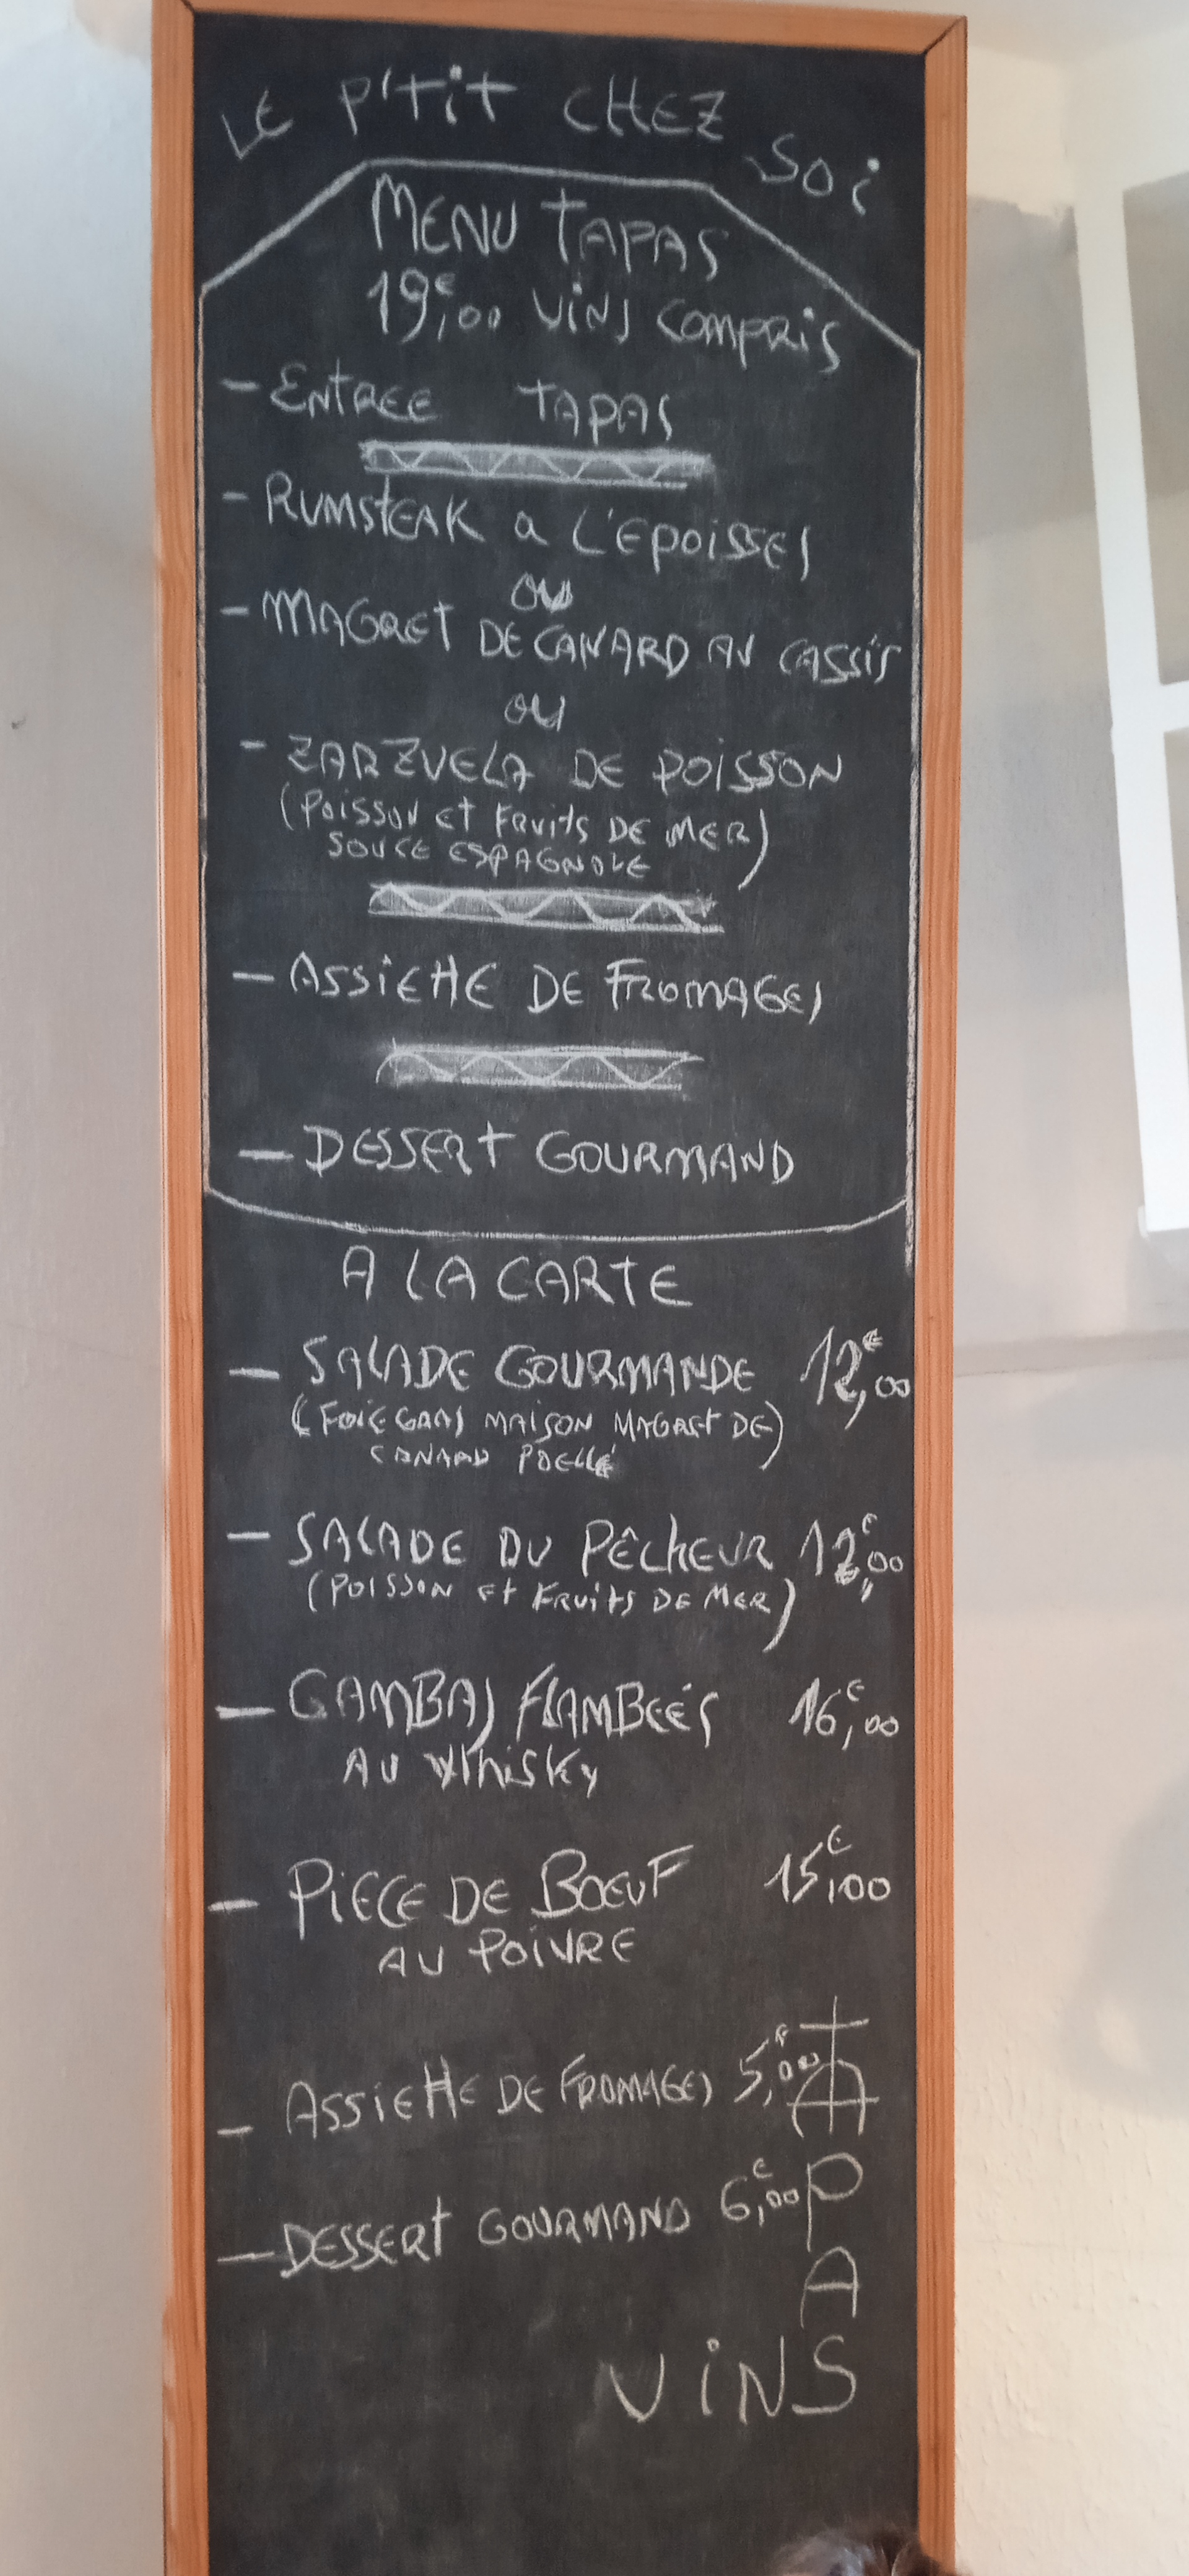 LE P'TIT CHEZ SOI
MENU TAPAS
19€,00 VINS COMPRIS
- ENTREE TAPAS
- RUMSTEAK a L'EPOISSES
OU
- MAGRET DE CANARD AU CASSIS
OU
- ZARZUELA DE POISSON
(POISSON ET FRUITS DE MER)
SOUCE ESPAGNOLE
- ASSIETTE DE FROMAGES
- DESSERT GOURMAND
A LA CARTE
- SALADE GOURMANDE 12€,00
(FOIE GRAS MAISON MAGRET DE)
CANARD POELLÉ
- SALADE DU PÊCHEUR 12€,00
(POISSON ET FRUITS DE MER)
- GAMBAS FLAMBEÉS 16€,00
AU WHISKY
- PIECE DE BOEUF 15€,00
AU POIVRE
- ASSIETTE DE FROMAGES 5€,00
- DESSERT GOURMAND 6€,00
T
A
P
A
VINS